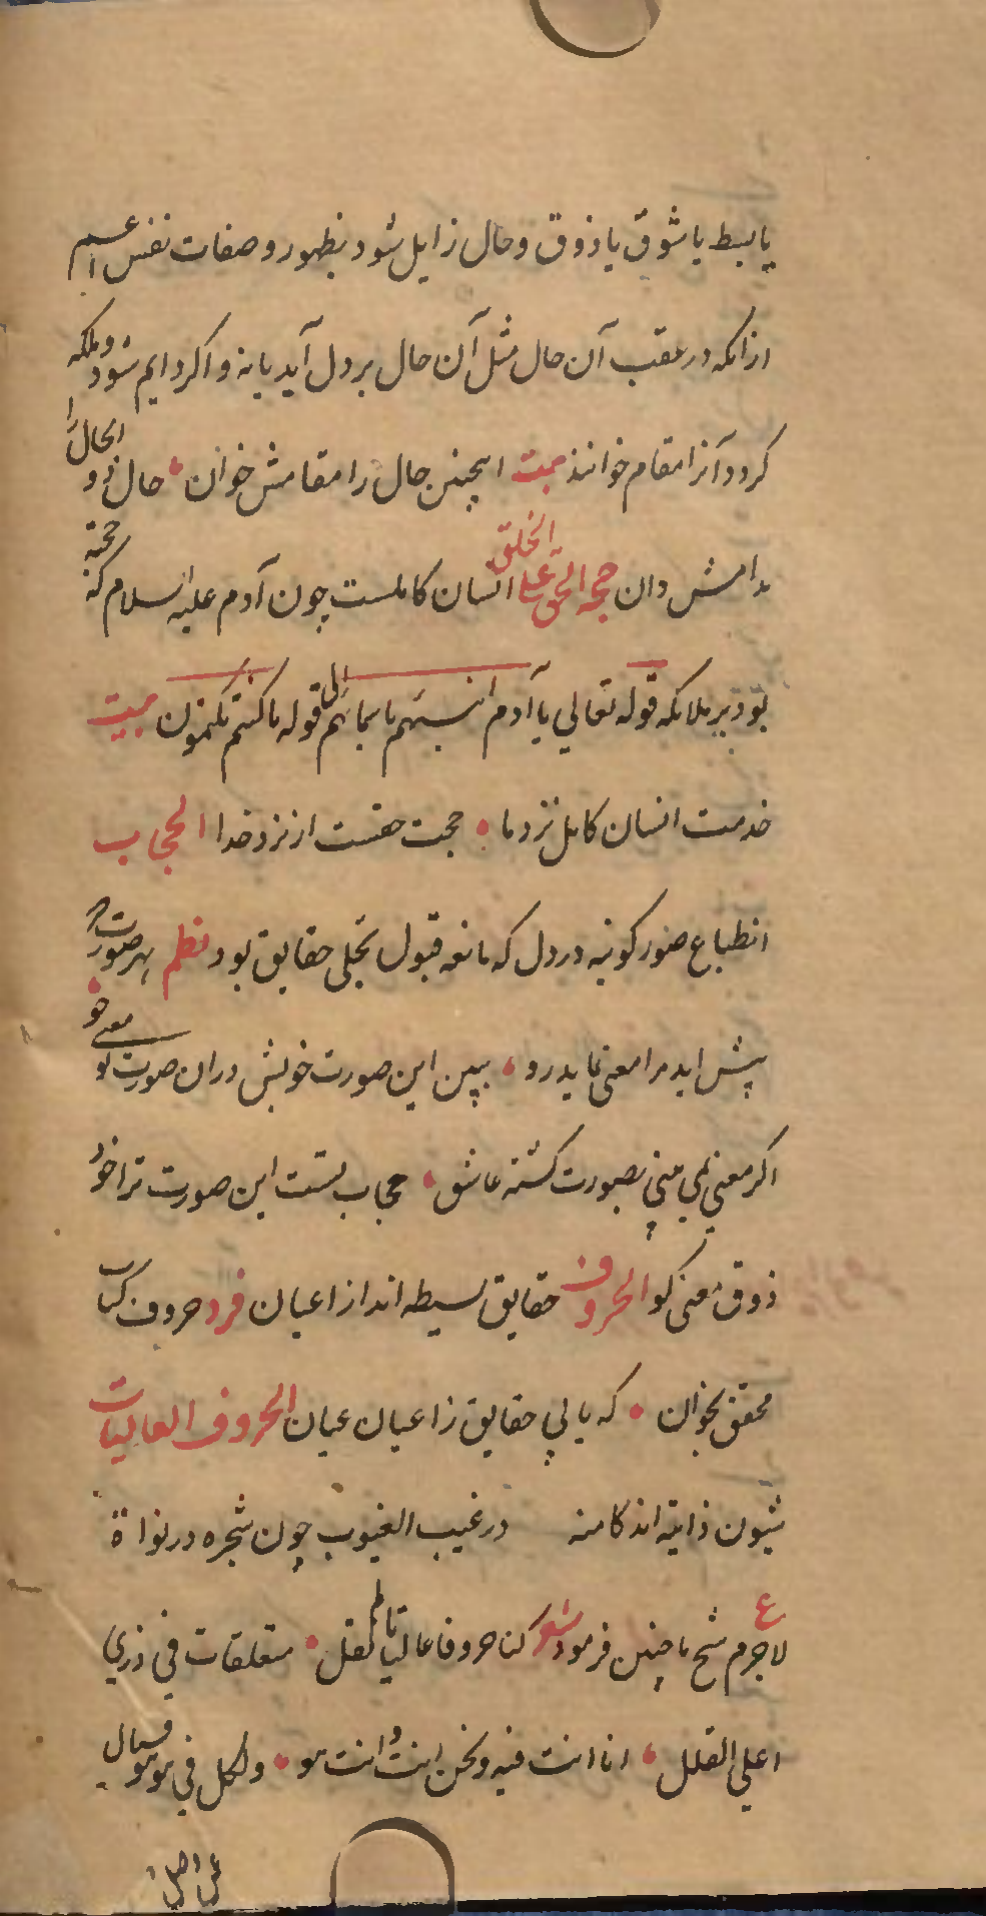 یا بسط یا شوق یا ذوق و حال زایل شود بظهور و صفات نفس اعم
ازانکه در عقب آن حال مثل آن حال بر دل آید یا نه و اکر دایم شود و ملکه
کردد آنرا مقام خوانند بیت اینچنین حال را مقامش خوان • حال ذو الحال را
دامش دان حجة الحق علی الخلق انسان کاملست چون آدم علیه السلام که حجة
بود بر ملائکه قوله تعالی یا آدم انبئهم باسمائهم الی قوله ما کنتم تکتمون بیت
خدمت انسان کامل نزد ما • حجت حقست از نزد خدا الحجاب
انطباع صور کونیه در دل که مانعه قبول تجلی حقایق بود نظم بهر صورت که
پیش اید مرا معنی نماید رو • ببین این صورت خوبش دران صورت تو معنی جو •
اکر معنی نمی بینی بصورت کشتهٔ عاشق • حجاب تست این صورت ترا خود
ذوق معنی کو الحروف حقایق بسیطه اند از اعیان فرد حروف کتاب
محقق بخوان • که یابی حقایق ز اعیان عیان الحروف العالیات
شیون ذاتیه اند کامنه در غیب الغیوب چون شجره در نواة
لاجرم شیخ ما چنین فرمود شعر کنا حروفا عالیات لم نقل • متعلقات فی ذری
اعلی القلل • انا انت فیه و نحن انت و انت هو • و الکل فی هو هو فسال
عمن وصل